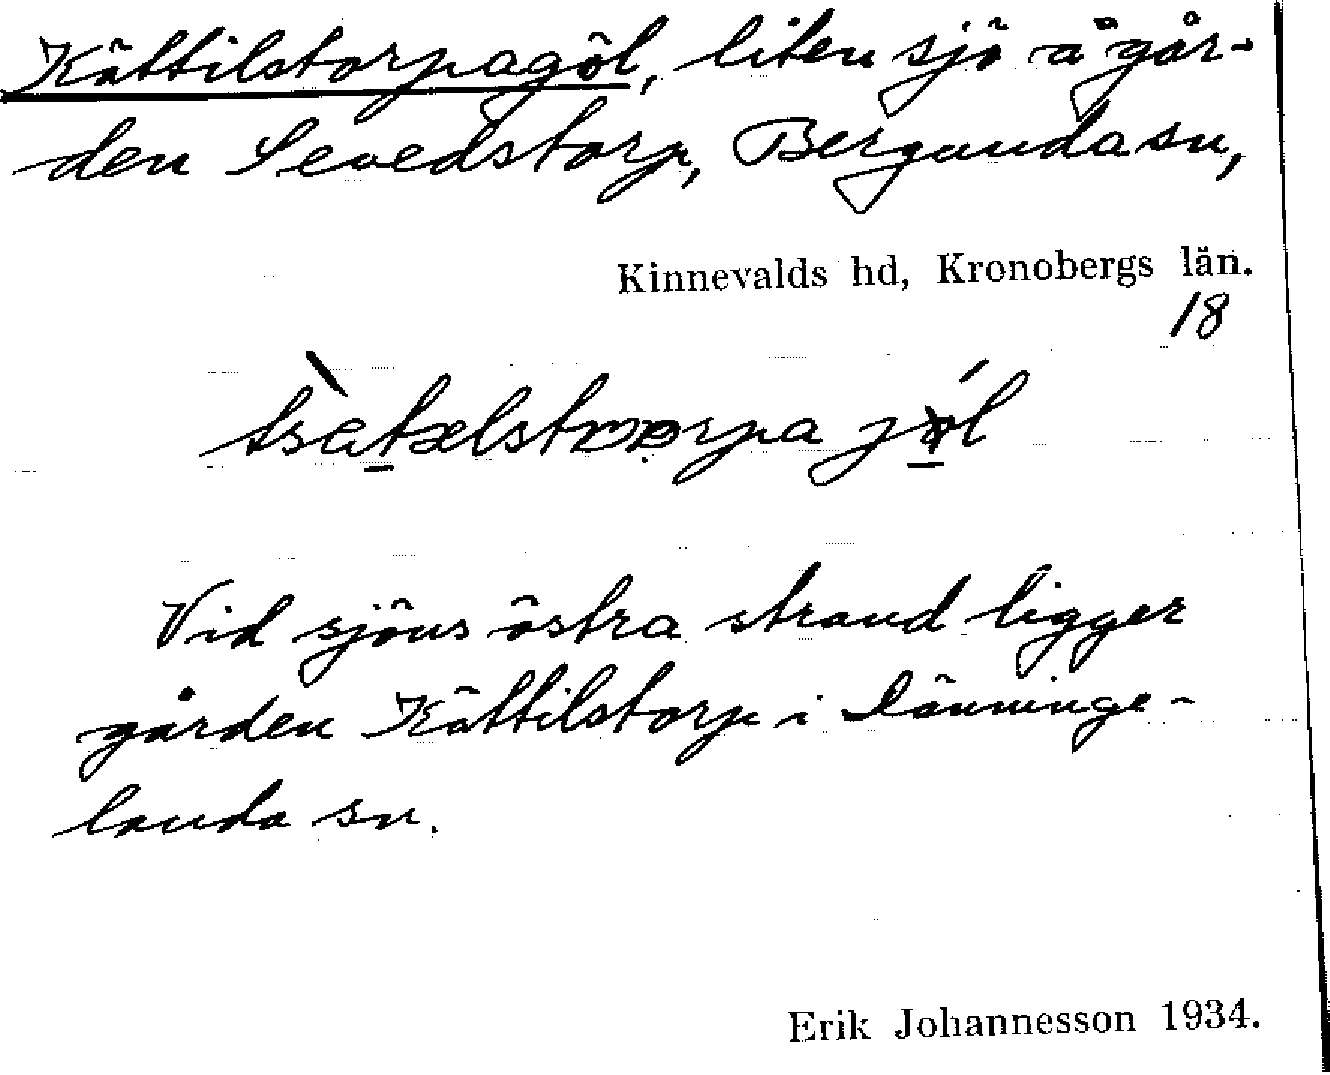 Kättilstorpagöl, liten sjö å går-
den Sevedstorp, Bergunda sn,
Kinnevalds hd, Kronobergs län.
18
Vid sjöns östra strand ligger
gården Kättilstorp i Länninge-
landa sn.
Erik Johannesson 1934.